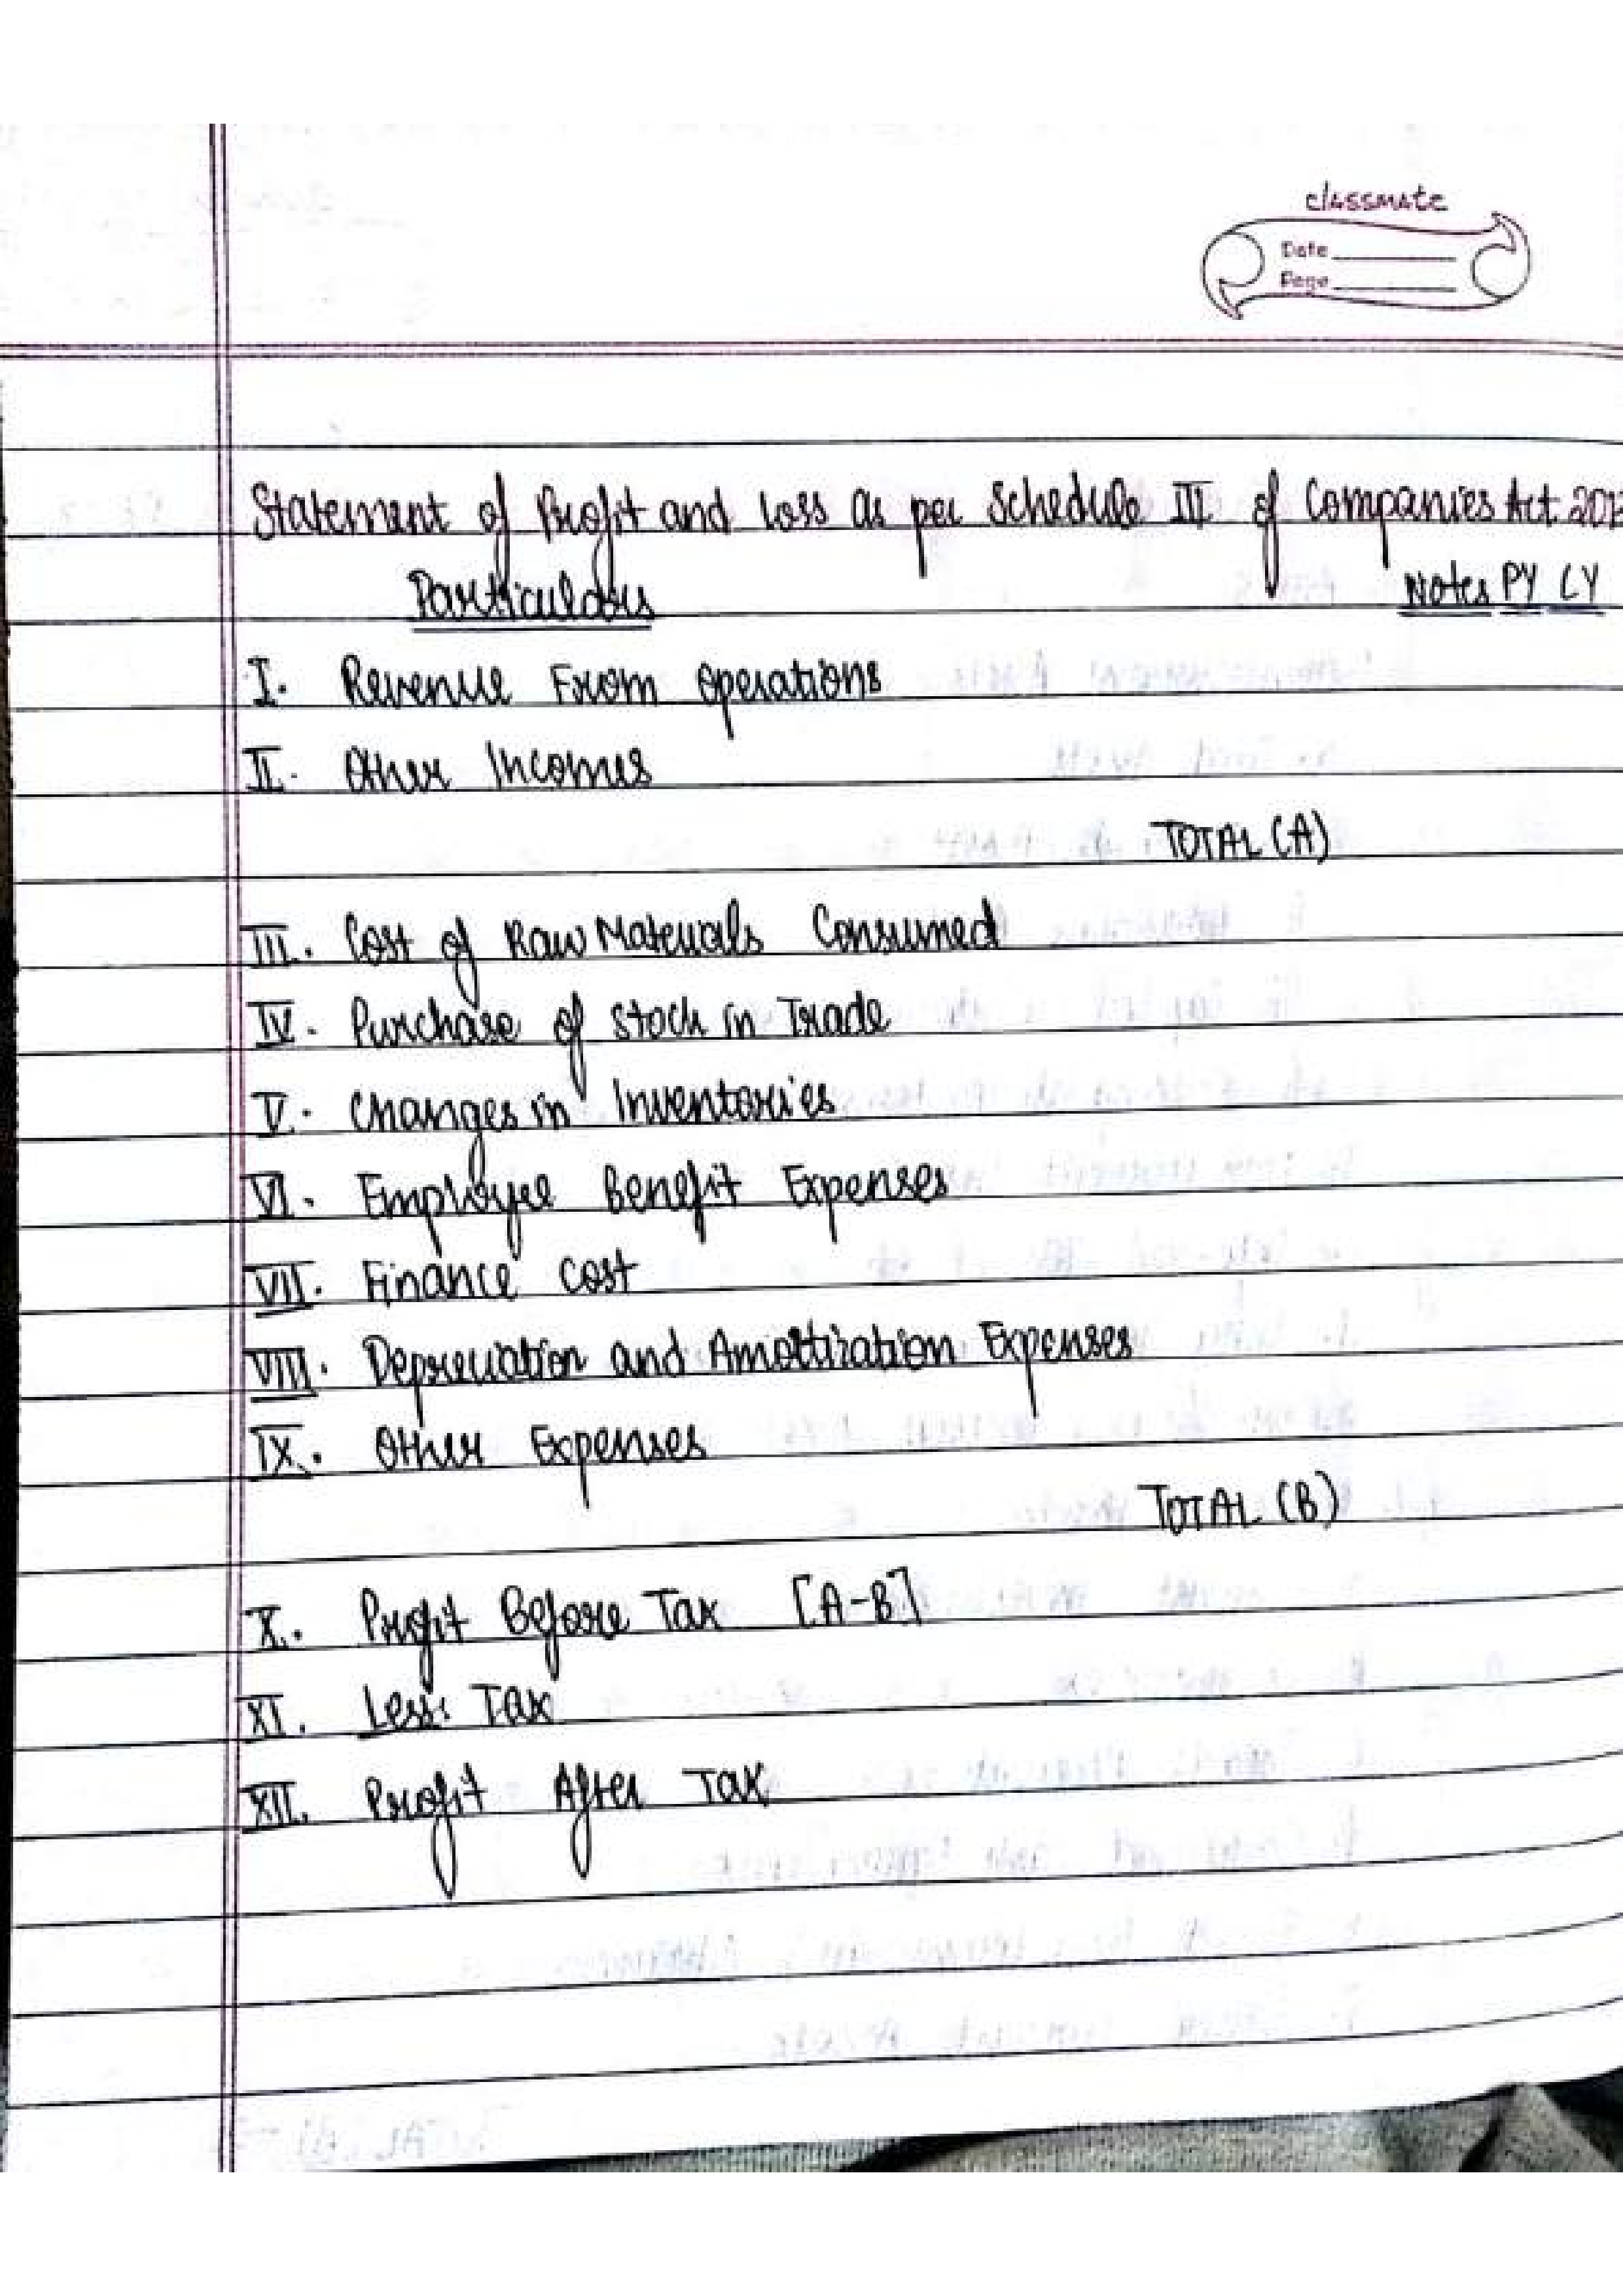 classmate
Date
Page
Statement of Profit and Loss as per Schedule III of Companies Act 2013
Particulars Notes PY CY
I. Revenue From Operations
II. Other Incomes
TOTAL (A)
III. Cost of Raw Materials Consumed
IV. Purchase of Stock in Trade
V. Changes in Inventories
VI. Employee Benefit Expenses
VII. Finance Cost
VIII. Depreciation and Amottization Expenses
IX. Other Expenses
TOTAL (B)
X. Profit Before Tax [A-B]
XI. Less: Tax
XII. Profit After Tax